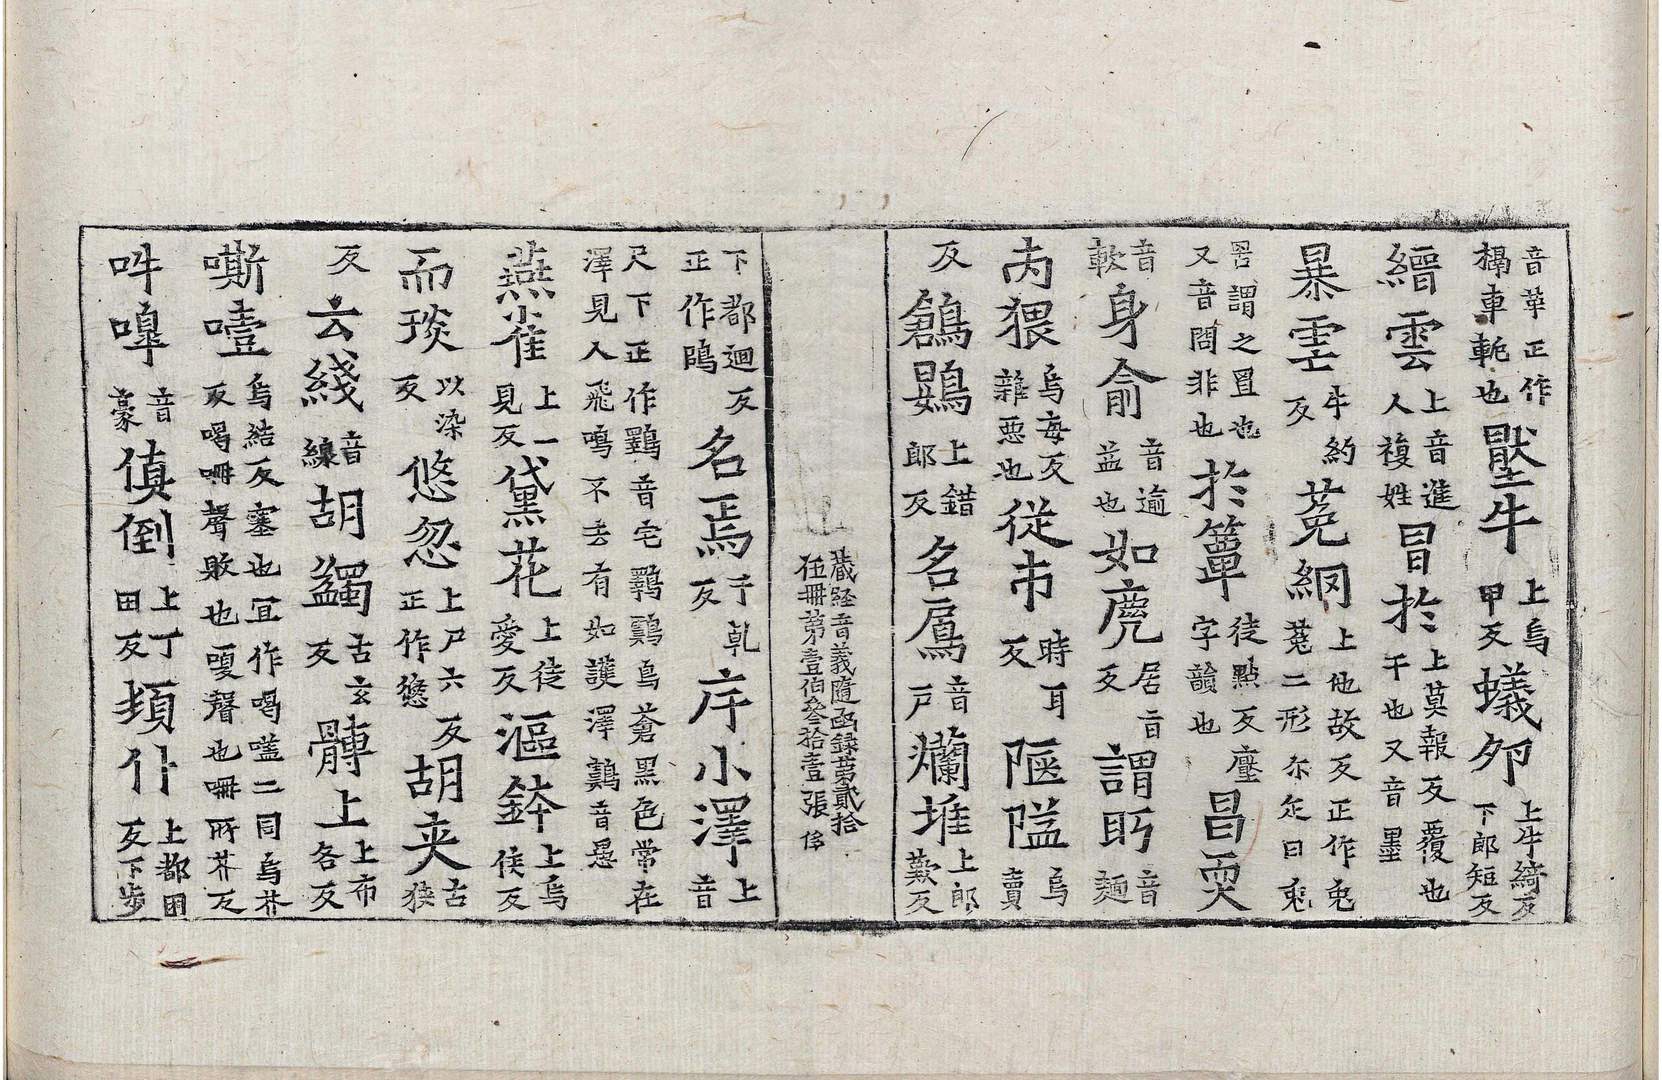 音革正作槅車軛也壓牛上烏甲反蟻夘上牛綺反下郎短反
繒雲上音進人複姓冒於上莫報反覆也干也又音墨
暴雹牛約反菟網上他故反正作兔菟二形尒疋曰兔
罟謂之罝也又音閭非也於簟徒點反字韻也昌耎
音軟身俞音逾益也如甝居言反謂眄音麵
為猥烏每反雜惡也從市時耳反陋隘烏賣
反鶬鶪上錯郎反名鳸音戶爛堆上郎歎反
藏経音義隨函録第貳拾伍冊第壹伯叄拾壹張
下都迴反正作䳡名焉于乹反庌小澤上音
尺下正作鸅音宅鸅鸆鳥蒼黑色常在澤見人飛鳴不去有如護澤鸆音愚
燕雀上一見反黛花上徒愛反漚鉢上烏侯反
而琰以染反悠忽上尸六反正作㥞胡夾古狹
反玄綫音線胡蠲古玄反髆上上布各反
嘶噎烏結反塞也冝作喝嗌二同烏芥反喝嘶聲敗也嗄聲也嘶所芥反
吽嘷音豪傎倒上丁田反頊仆上都田反下步